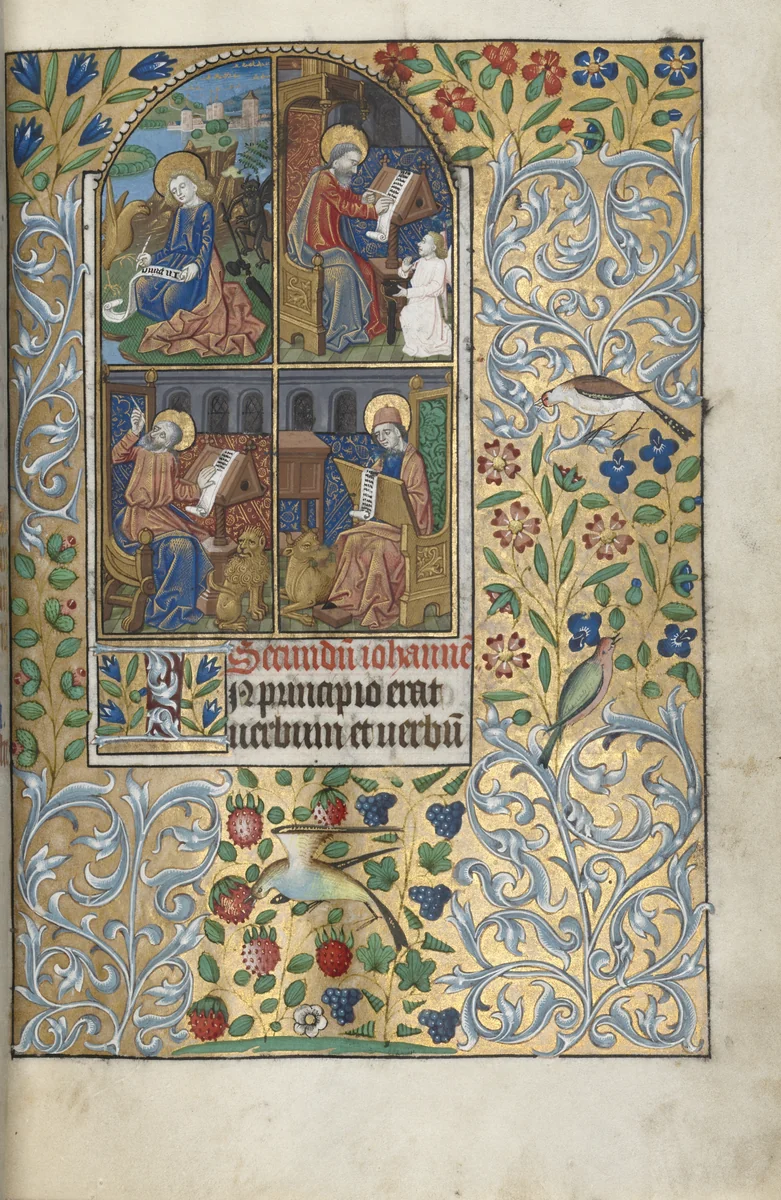 In prin
Secundū iohannē
IN principio erat
uerbum et uerbū